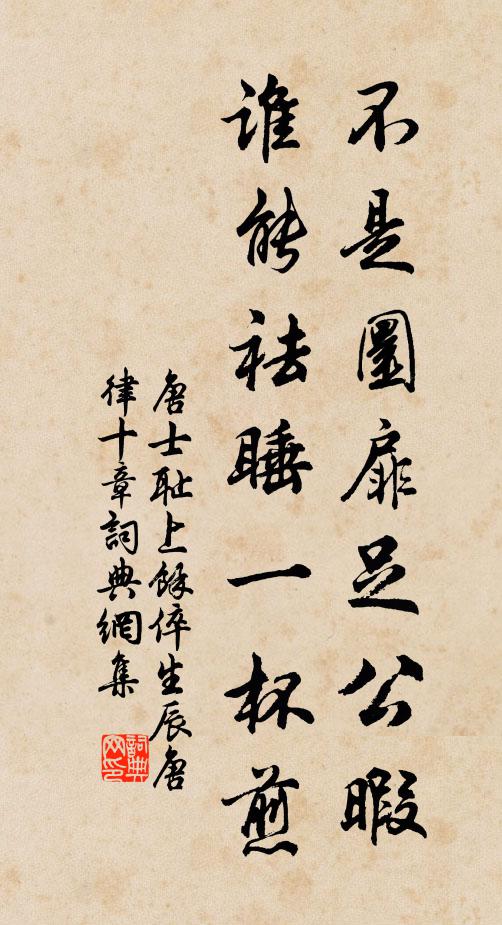 不是圜扉足公暇
谁能祛睡一杯煎
唐士耻上餘倅生辰唐
律十章詞典網集
詞典网印